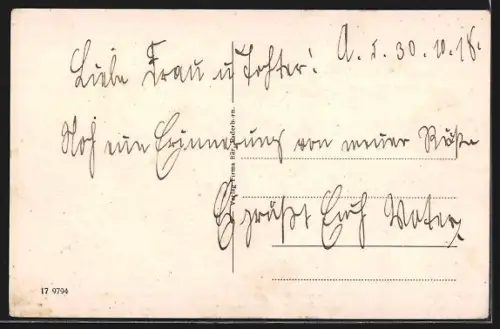 A. d. 30.10.18.
Liebe Frau u Tochter!
Noch eine Erinnerung von meiner Reise
Es grüßt Euch Vater
Verlag Firma
17 9794